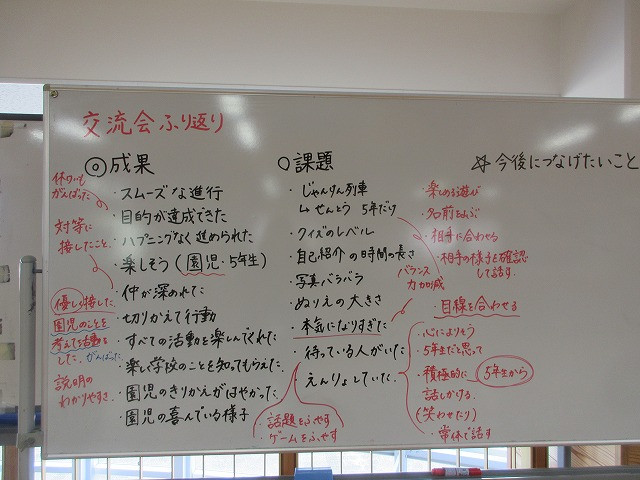 交流会ふり返り
◎成果
・スムーズな進行
・目的が達成できた
・ハプニングなく進められた
・楽しそう(園児・5年生)
・仲が深めれた
・切りかえて行動
・すべての活動を楽しんでくれた
・楽しく学校のことを知ってもらえた
・園児のきりかえがはやかった
・園児の喜んでいる様子
がんばった
対等に
接したこと
優しく接した
園児のことを
考えて活動を
した
がんばった
説明の
わかりやすさ
○課題
・じゃんけん列車
↳せんとう 5年だけ
・クイズのレベル
・自己紹介の時間の長さ
・写真バラバラ
・ぬりえの大きさ
・本気になりすぎた
・待っている人がいた
・えんりょしていた
バランス
力加減
・話題をふやす
・ゲームをふやす
☆今後につなげたいこと
・楽しめる遊び
・名前をよぶ
・相手に合わせる
・相手の様子を確認
して話す
・目線を合わせる
・心によりそう
・5年生だと思って
・積極的に 5年生から
話しかける
(笑わせたり)
・常体で話す